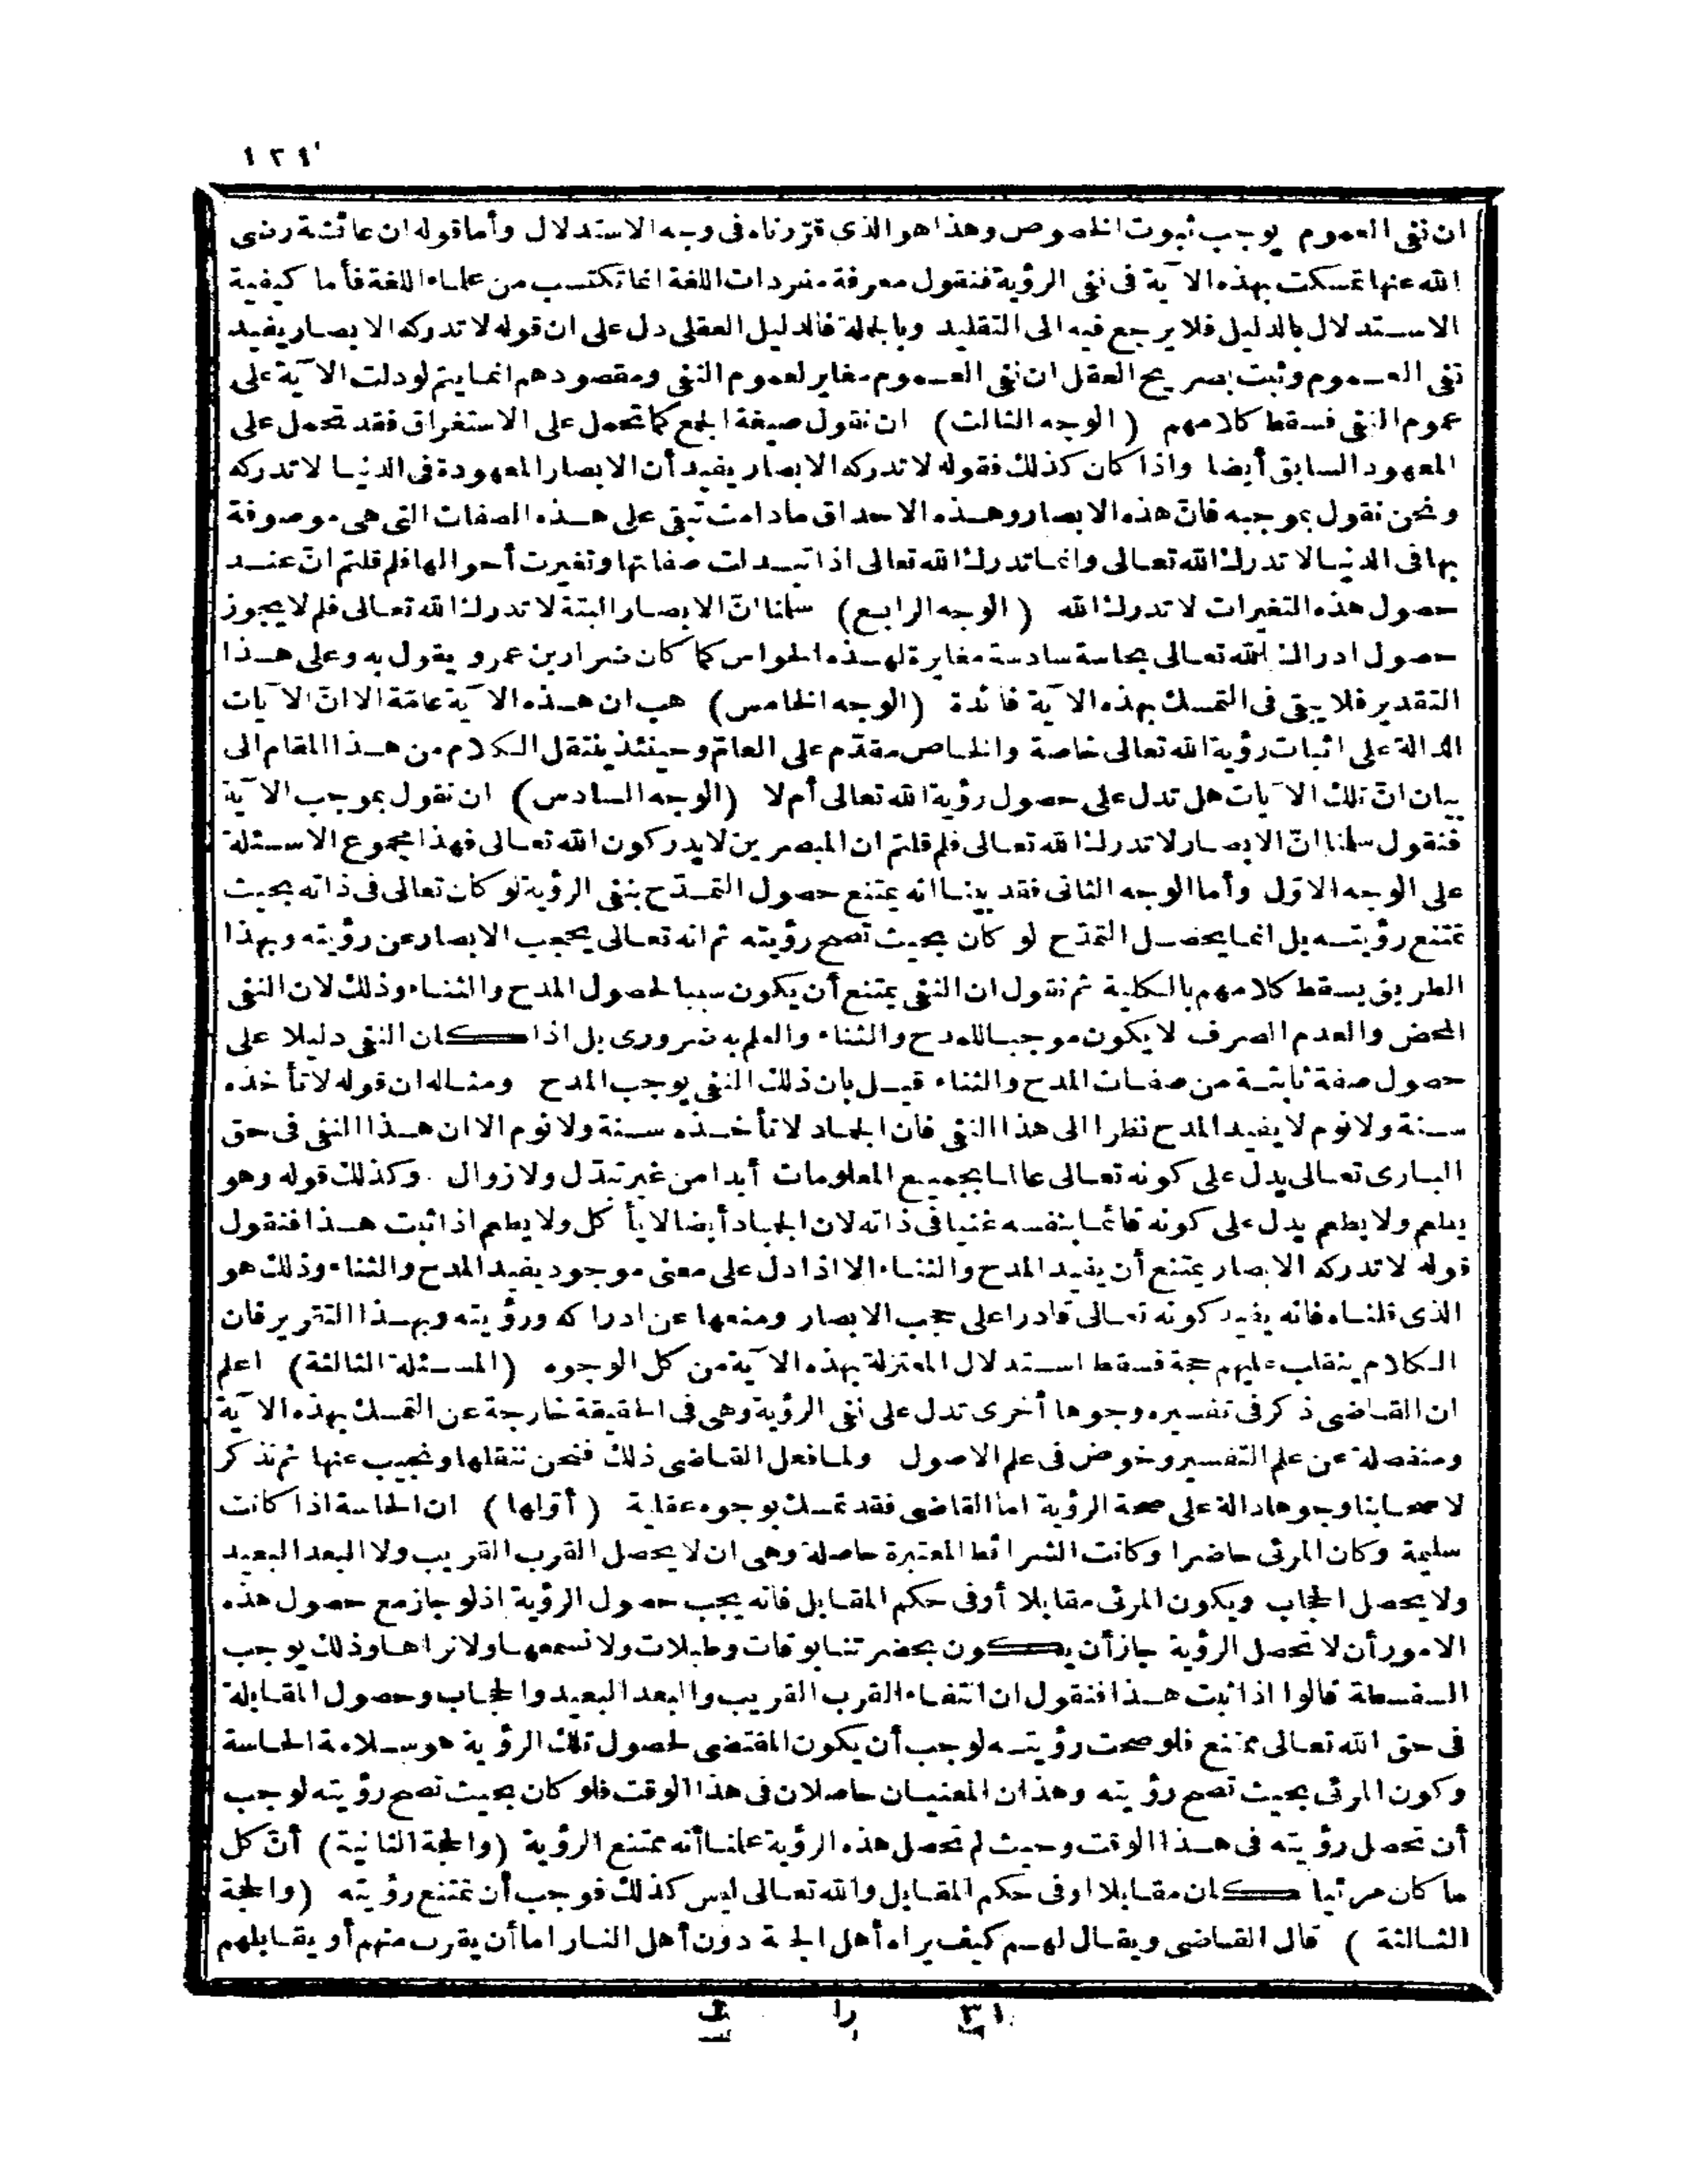 ١٢١
ان نفى العموم يوجب ثبوت الخصوص وهذا هو الذى قرّرناه فى وجه الاستدلال وأما قوله ان عائشة رضى
الله عنها تمسكت بهذه الآية فى نفى الرؤية فنقول معرفة مفردات اللغة انما تكتسب من علماء اللغة فأما كيفية
الاستدلال بالدليل فلا يرجع فيه الى التقليد وبالجملة فالدليل العقلى دل على ان قوله لا تدركه الابصار يفيد
نفى العموم وثبت بصريح العقل ان نفى العموم مغاير لعموم النفى ومقصودهم انما يتم لو دلت الآية على
عموم النفى فسقط كلامهم (الوجه الثالث) ان نقول صيغة الجمع كما تحمل على الاستغراق فقد تحمل على
المعهود السابق أيضا واذا كان كذلك فقوله لا تدركه الابصار يفيد أن الابصار المعهودة فى الدنيا لا تدركه
ونحن نقول بموجبه فانّ هذه الابصار وهذه الاحداق مادامت تبقى على هذه الصفات التى هى موصوفة
بها فى الدنيا لا تدرك الله تعالى وانما تدرك الله تعالى اذا تبدلت صفاتها وتغيرت أحوالها فلم قلتم انّ عند
حصول هذه التغيرات لا تدرك الله (الوجه الرابع) سلمنا انّ الابصار البتة لا تدرك الله تعالى فلم لا يجوز
حصول ادراك الله تعالى بحاسة سادسة مغايرة لهذه الحواس كما كان ضرار بن عمرو يقول به وعلى هذا
التقدير فلا يبقى فى التمسك بهذه الآية فائدة (الوجه الخامس) هب ان هذه الآية عامّة الا انّ الآيات
الدالة على اثبات رؤية الله تعالى خاصة والخاص مقدّم على العامّ وحينئذ ينتقل الكلام من هذا المقام الى
بيان انّ تلك الآيات هل تدل على حصول رؤية الله تعالى أم لا (الوجه السادس) ان نقول بموجب الآية
فنقول سلمنا انّ الابصار لا تدرك الله تعالى فلم قلتم ان المبصرين لا يدركون الله تعالى فهذا مجموع الاسئلة
على الوجه الاوّل وأما الوجه الثانى فقد بينا انه يمتنع حصول التمدّح بنفى الرؤية لو كان تعالى فى ذاته بحيث
تمتنع رؤيته بل انما يحصل التمدّح لو كان بحيث تصح رؤيته ثم انه تعالى يحجب الابصار عن رؤيته وبهذا
الطريق يسقط كلامهم بالكلية ثم نقول ان النفى يمتنع أن يكون سببا لحصول المدح والثناء وذلك لان النفى
المحض والعدم الصرف لا يكون موجبا للمدح والثناء والعلم به ضرورى بل اذا كان النفى دليلا على
حصول صفة ثابتة من صفات المدح والثناء قيل بان ذلك النفى يوجب المدح ومثاله ان قوله لا تأخذه
سنة ولا نوم لا يفيد المدح نظرا الى هذا النفى فان الجماد لا تأخذه سنة ولا نوم الا ان هذا النفى فى حق
البارى تعالى يدل على كونه تعالى عالما بجميع المعلومات أبدا من غير تبدّل ولا زوال وكذلك قوله وهو
يطعم ولا يطعم يدل على كونه قائما بنفسه غنيا فى ذاته لان الجماد أيضا لا يأكل ولا يطعم اذا ثبت هذا فنقول
قوله لا تدركه الابصار يمتنع أن يفيد المدح والثناء الا اذا دل على معنى موجود يفيد المدح والثناء وذلك هو
الذى قلناه فانه يفيد كونه تعالى قادرا على حجب الابصار ومنعها عن ادراكه ورؤيته وبهذا التقرير فان
الكلام ينقلب عليهم حجة فسقط استدلال المعتزلة بهذه الآية من كل الوجوه (المسئلة الثالثة) اعلم
ان القاضى ذكر فى تفسيره وجوها أخرى تدل على نفى الرؤية وهى فى الحقيقة خارجة عن التمسك بهذه الآية
ومنفصلة عن علم التفسير وخوض فى علم الاصول ولما فعل القاضى ذلك فنحن ننقلها ونجيب عنها ثم نذكر
لاصحابنا وجوها دالة على صحة الرؤية اما القاضى فقد تمسك بوجوه عقلية (أوّلها) ان الحاسة اذا كانت
سليمة وكان المرئى حاضرا وكانت الشرائط المعتبرة حاصلة وهى ان لا يحصل القرب القريب ولا البعد البعيد
ولا يحصل الحجاب ويكون المرئى مقابلا أو فى حكم المقابل فانه يجب حصول الرؤية اذ لو جاز مع حصول هذه
الامور أن لا تحصل الرؤية جاز أن يكون بحضرتنا بوقات وطبلات ولا نسمعها ولا نراها وذلك يوجب
السفسطة قالوا اذا ثبت هذا فنقول ان انتفاء القرب القريب والبعد البعيد والحجاب وحصول المقابلة
فى حق الله تعالى ممتنع فلو صحت رؤيته لوجب أن يكون المقتضى لحصول تلك الرؤية هو سلامة الحاسة
وكون المرئى بحيث تصح رؤيته وهذان المعنيان حاصلان فى هذا الوقت فلو كان بحيث تصح رؤيته لوجب
أن تحصل رؤيته فى هذا الوقت وحيث لم تحصل هذه الرؤية علمنا أنه ممتنع الرؤية (والحجة الثانية) أنّ كل
ما كان مرئيا كان مقابلا او فى حكم المقابل والله تعالى ليس كذلك فوجب أن تمتنع رؤيته (والحجة
الثالثة) قال القاضى ويقال لهم كيف يراه أهل الجنة دون أهل النار اما أن يقرب منهم أو يقابلهم
٣١ را